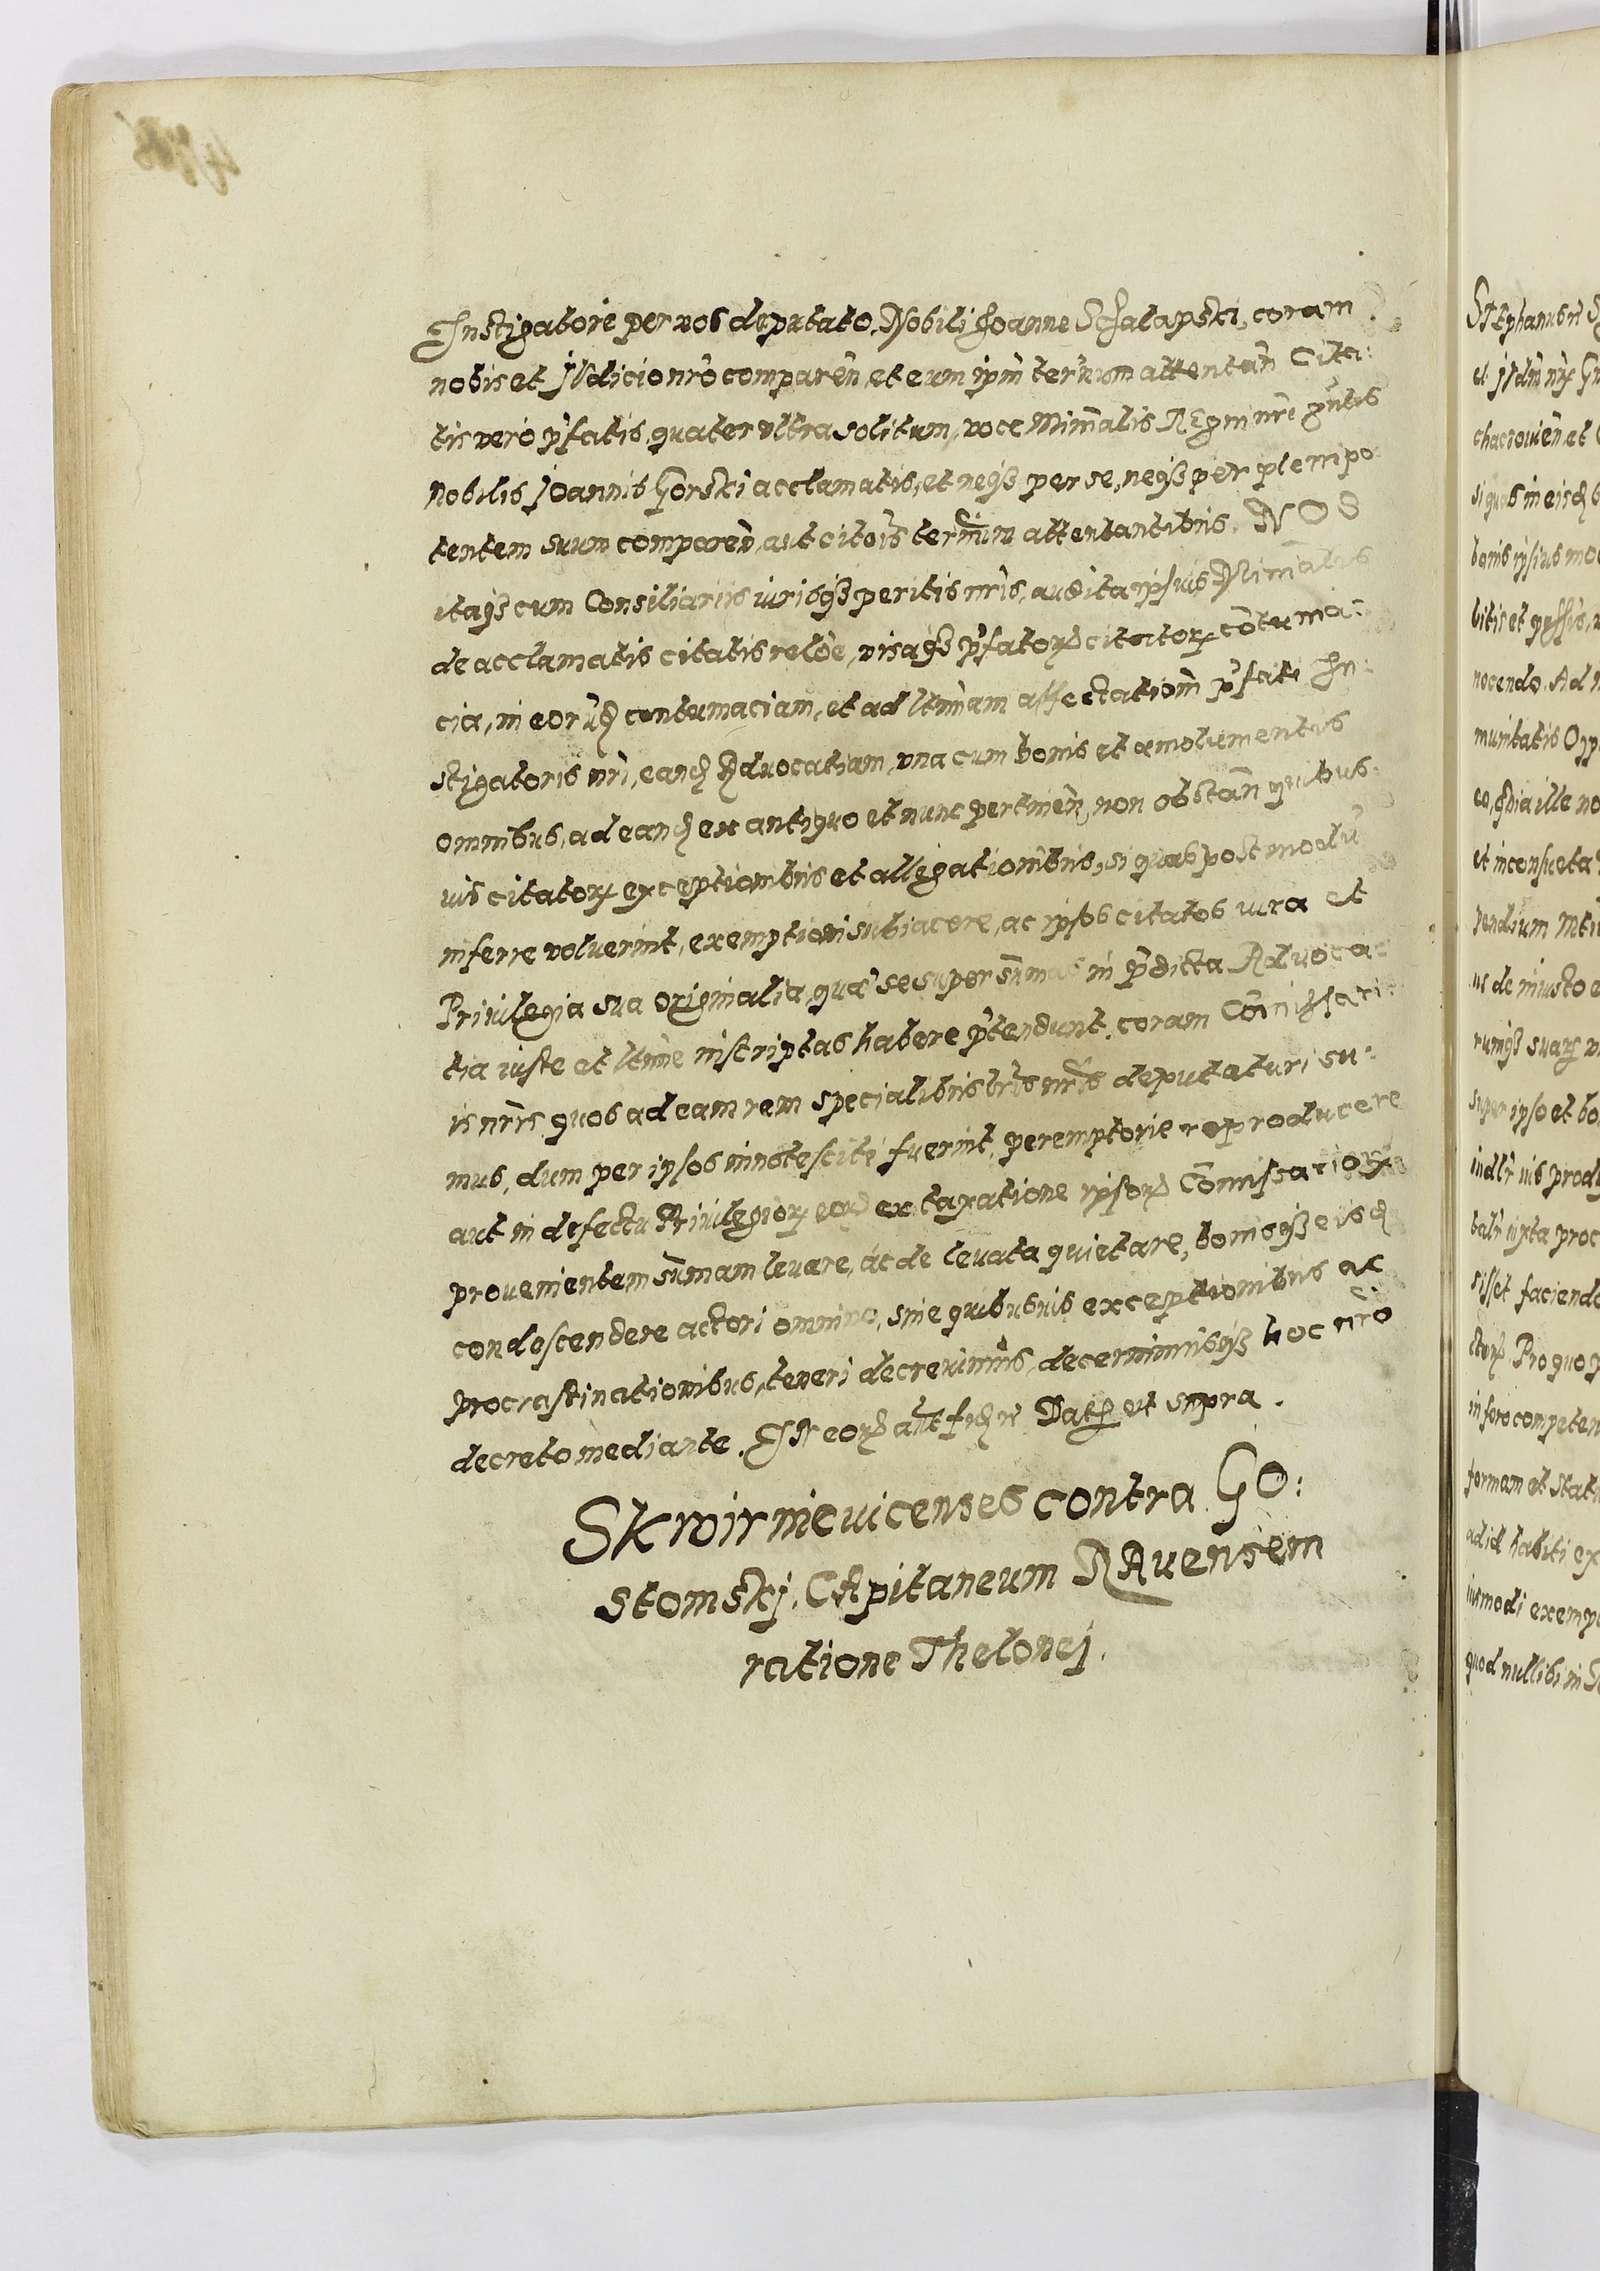 Instigatore per nos deputato, Nobili Joanne Schalapski, coram
nobis et JVdicio nr̃o comparen̄, et eum ip̄m ter̄num attentan̄ Cita:
tis vero p̄fatis, quater vltra solitum, voce Min̄alis REgni nr̄i p̄ntis
Nobilis JOannis Gorski acclamatis, et neqз per se, neqз per plenipo:
tentem suum comparen̄, aut citōis ter̄num attentantibus. NOS
itaqз cum Consiliariis iurisqз peritis nr̄is, audita ipsius Min̄alis
de acclamatis citatis relōe, visaqз p̄fatorꝝ citatorꝝ cōtuma:
cia, in eorūd contumaciam, et ad ltīmam affectationem p̄fati In:
stigatoris nr̄i, eand Aduocatiam, vna cum bonis et emolumentis
omnibus, ad eand ex antiquo et nunc pertinen̄, non obstan̄ quibus:
uis citatorꝝ exceptionibus et allegationibus, si quas post modū
inferre voluerint, exemptioni subiacere, ac ipsos citatos iura et
Priuilegia sua originalia, quæ se super sūmas in p̄dicta Aduoca:
tia iuste et ltīme inscriptas habere p̄tendunt, coram Cōmissari:
is nr̄is quos ad eam rem specialibus lr̄is nr̄is deputaturi su:
mus, dum per ipsos innotesciti fuerint, peremptorie reproducere
aut in defectu Priuilegiorꝝ eorꝝ ex taxatione ipsorꝝ Cōmissariorꝝ
prouenientem sūmam leuare, ac de leuata quietare, bonisqз eisd
condescendere actori omnino, sine quibusuis exceptionibus ac
procrastinationibus, teneri decreuimus, decernimusqз hoc nr̄o
decreto mediante. IN eorꝝ aūt fid nr̄ Dat ut supra.
SKwirnieuicenses contra GO:
stomskj, CApitaneum RAuensem
ratione Thelonej.
STEphanus
et JVdīn nr̄
chaczouien̄ et
si quos in eisd
bonis ipsius
litis et
nocendo. Ad
munitatis Opp
eo, qd ia ille no
et inconsueta
pendium
us de iniusto e
rumqз suarꝝ
super ipso et bo
prod
iuxta proc
sisset faciendo
Pro quo p
in foro competen
formam et Statu
ad id habiti ex
iusmodi exemp
quod nullibi in